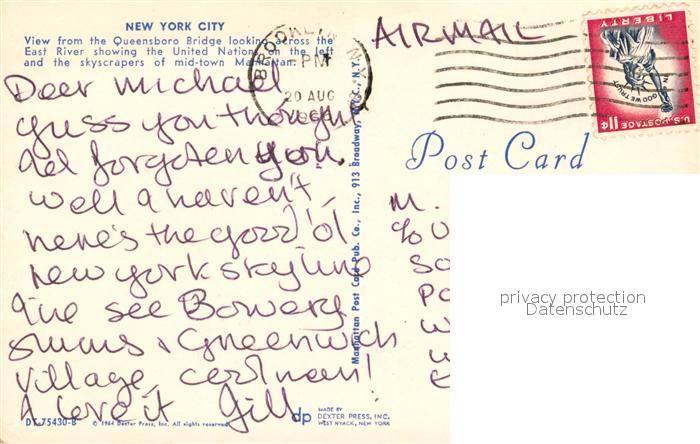 NEW YORK CITY
View from the Queensboro Bridge looking across the
East River showing the United Nations on the left
and the skyscrapers of mid-town Manhattan.
Dear Michael
guess you thought
ad forgotten you.
well a haven't,
here's the good 'ol
new york skyline
I've see Bowery
slums & Greenwich
village, cool man!
I love it Gill
DT-75430-B
© 1964 Dexter Press, Inc. All rights reserved
dp
MADE BY
DEXTER PRESS, INC.
WEST NYACK, NEW YORK
Manhattan Post Card Pub. Co., Inc., 913 Broadway, N.Y.C., N.Y.
BROOKLYN, N.Y.
PM
20 AUG
AIRMAIL
LIBERTY
IN GOD WE TRUST
U.S. POSTAGE 11¢
Post Card
M.
c/o U
So
Po
W
privacy protection
Datenschutz